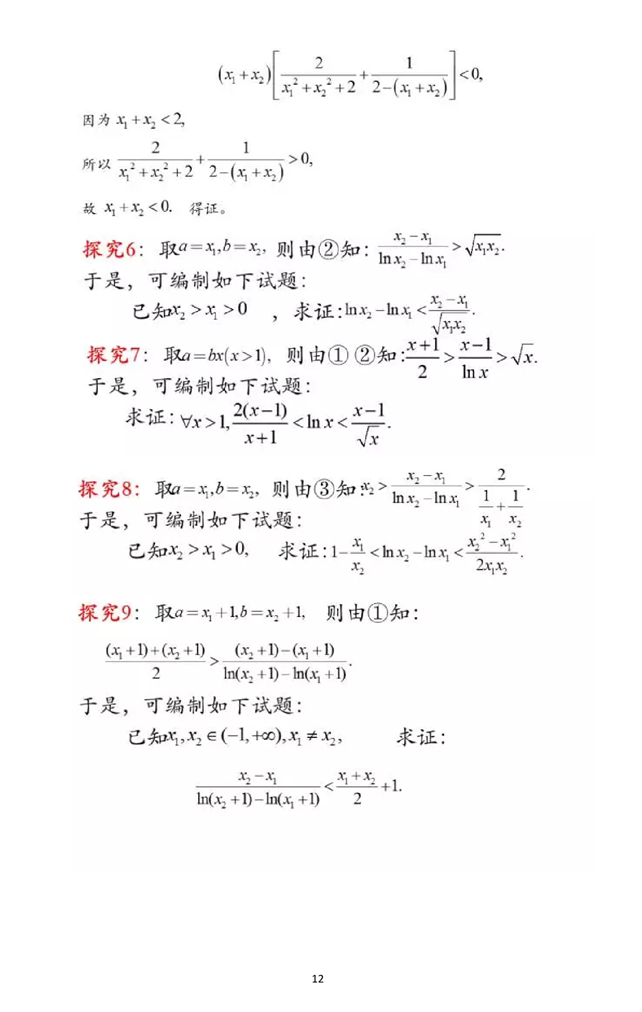 (x₁+x₂)[2/(x₁²+x₂²+2)+1/(2−(x₁+x₂))]<0,
因为 x₁+x₂<2,
所以 2/(x₁²+x₂²+2)+1/(2−(x₁+x₂))>0,
故 x₁+x₂<0. 得证。
探究6：取a=x₁,b=x₂, 则由②知：(x₂−x₁)/(ln x₂−ln x₁)>√(x₁x₂).
于是，可编制如下试题：
已知x₂>x₁>0 ，求证:ln x₂−ln x₁<(x₂−x₁)/√(x₁x₂).
探究7：取a=bx(x>1), 则由① ②知:(x+1)/2>(x−1)/ln x>√x.
于是，可编制如下试题：
求证:∀x>1,2(x−1)/(x+1)<ln x<(x−1)/√x.
探究8：取a=x₁,b=x₂, 则由③知:x₂>(x₂−x₁)/(ln x₂−ln x₁)>2/(1/x₁+1/x₂).
于是，可编制如下试题：
已知x₂>x₁>0, 求证:1−x₁/x₂<ln x₂−ln x₁<(x₂²−x₁²)/(2x₁x₂).
探究9：取a=x₁+1,b=x₂+1, 则由①知：
((x₁+1)+(x₂+1))/2>((x₂+1)−(x₁+1))/(ln(x₂+1)−ln(x₁+1)).
于是，可编制如下试题：
已知x₁,x₂∈(−1,+∞),x₁≠x₂, 求证：
(x₂−x₁)/(ln(x₂+1)−ln(x₁+1))<(x₁+x₂)/2+1.
12